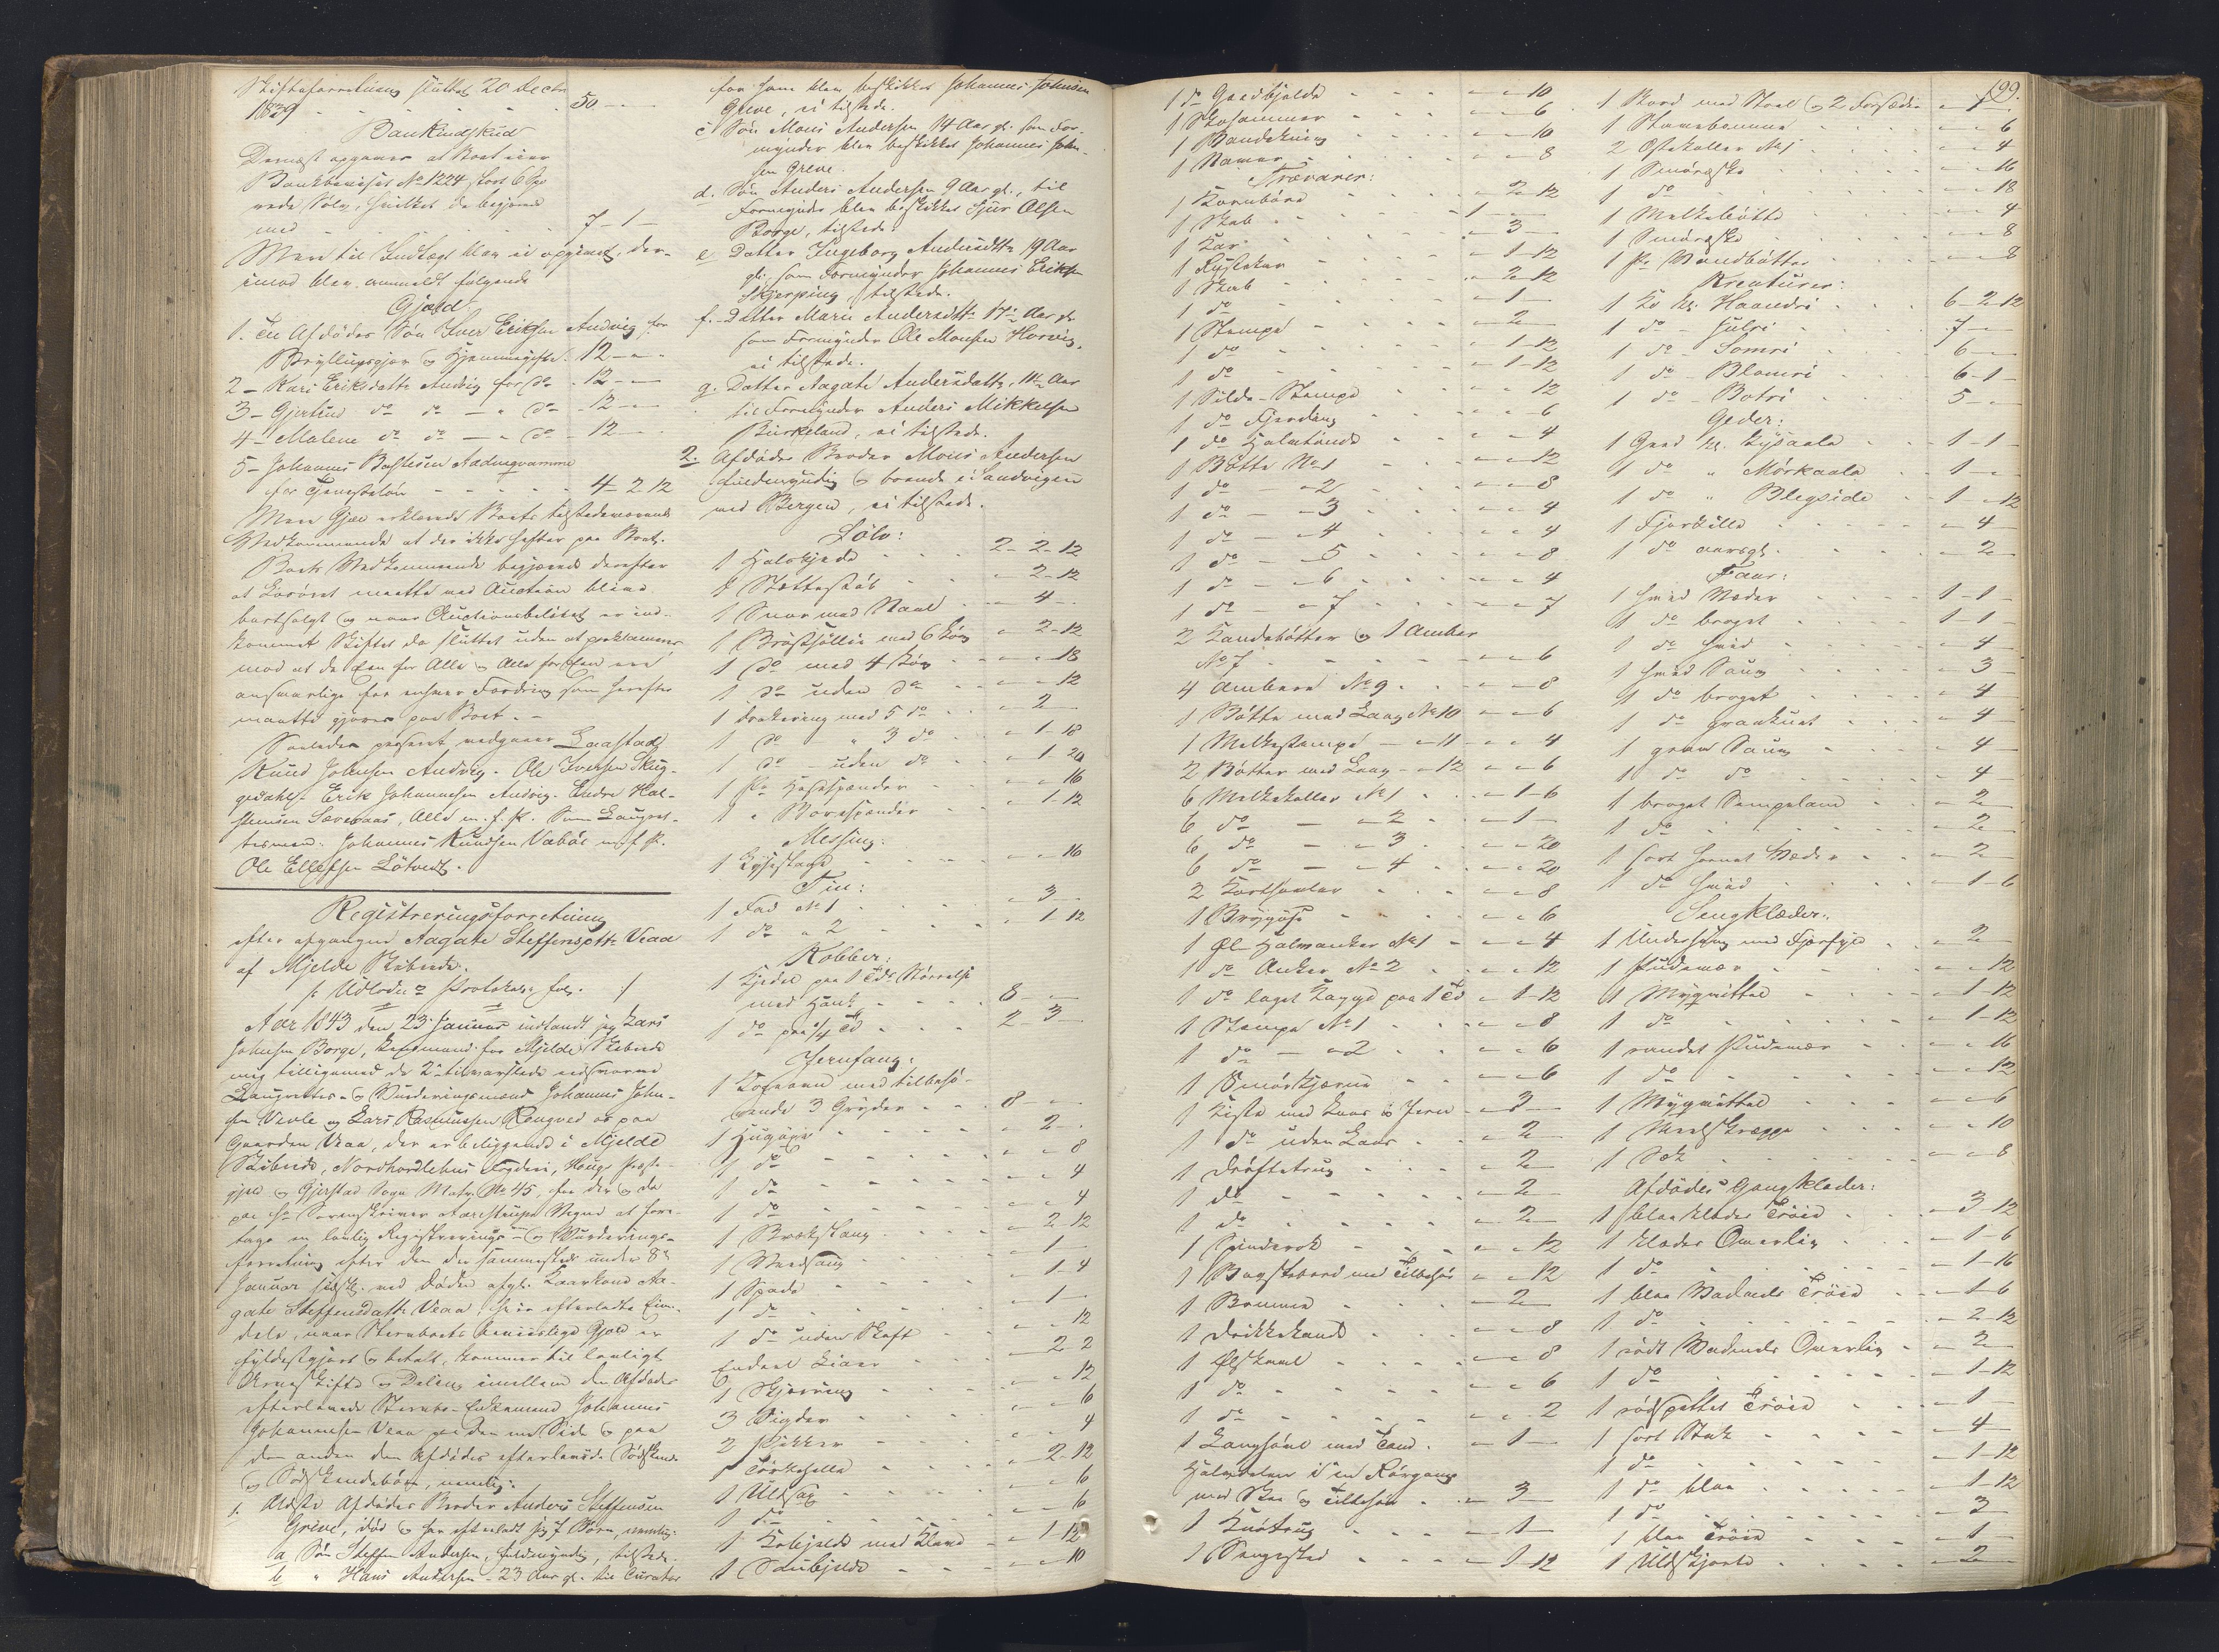 Skifteforretning sluttet 20 Decbr
1839 - - - 50 - -
Bankindskud
Dernæst opgaves at Boet eier
Bankbeviset No 1224 stort 6 Spd
rede Sølv, hvilket da beregnes
med - - - 7-1-
Mere til Indtægt blev ei opgivet, der-
imod blev anmeldt følgende
Gjæld:
1. Til Afdødes Søn Iver Eriksen Andvig for
Bryllupsgjør og Hjemmegifte. 12 - -
2 - Kari Eriksdatter Andvig for do - 12 - -
3 - Gjertrud do do - " do - 12 - -
4 - Malene do do - " do - 12 - -
5 - Johannes Bastesen Aadnegvamme
for Tjenesteløn - - - 4-2-12
Mere Gjæld erklærede Boets tilstedeværende
Vedkommende at der ikke hefter paa Boet.
Boets Vedkommende begjærede derefter
at Løsøret maatte ved Auction blive
bortsolgt og naar Auctionsbeløbet er ind-
kommet Skiftet da sluttet uden at proklameres
mod at de Een for Alle og Alle for Een ere
ansvarlige for enhver Fordring som herefter
maatte gjøres paa Boet. -
Saaledes passeret vedgaaer Laastad
Knud Johnsen Andvig. Ole Iversen Skug-
gedahl. Erik Johannesen Andvig. Endre Hal-
stensen Sævraas, Alle m. f. P. Som Laugret-
tesmænd: Johannes Knudsen Vabøe m f P.
Ole Ellefsen Løtvedt.
Registreringsforretning
efter afgangne Aagate Steffensdtr Veaa
af Mjelde Skibrede.
/: Udlodn. Protokol fol. :/
Aar 1843 den 23 Januar indfandt jeg Lars
Johnsen Borge, Lensmand for Mjelde Skibrede
mig tilligemed de 2de tilvarslede edsvorne
Laugrettes- og Vurderingsmænd Johannes John-
sen Veole og Lars Rasmussen Rongved os paa
Gaarden Veaa, der er beliggende i Mjelde
Skibrede, Nordhordlehns Fogderi, Hougs Præste-
gjeld og Gjerstad Sogn Matr. No 45, for der og da
paa Hr Sorenskriver Aarestrups Vegne at fore-
tage en lovlig Registrerings- og Vurderings-
forretning efter den der sammesteds under 8de
Januar sidstl. ved Døden afgl. Kaarkone Aa-
gate Steffensdatter Veaa hvis efterladte Eien-
dele, naar Sterboets beviislige Gjæld er
fyldestgjort og betalt, kommer til lovligt
Arveskifte og Deling imellem den Afdødes
efterlevende Sterbo-Enkemand Johannes
Johannesen Veaa paa den ene Side og paa
den anden den Afdødes efterlevende Sødskende
og Sødskendebørn, nemlig:
1. Ældste Afdødes Broder Anders Steffensen
Greve, død og har efterladt sig 7 Børn, nemlig:
a Søn Steffen Andersen, fuldmyndig, tilstede.
b " Hans Andersen - 23 Aar gl. til Curator
for ham blev beskikket Johannes Johnsen
Greve, ei tilstede.
c Søn Mons Andersen 14 Aar gl. som For-
mynder blev beskikket Johannes John-
sen Greve.
d. Søn Anders Andersen 9 Aar gl., til
Formynder blev beskikket Sjur Olsen
Borge, tilstede.
e Datter Ingeborg Andersdtr 19 Aar
gl. som Formynder Johannes Eriksen
Skjerping, tilstede.
f. Datter Marie Andersdtr 17 Aar gl.
som Formynder Ole Monsen Horvig,
ei tilstede.
g. Datter Aagate Andersdatter, 11 Aar
til Formynder Anders Mikkelsen
Birkeland, ei tilstede.
2. Afdødes Broder Mons Andersen
fuldmyndig og boende i Sandvigen
ved Bergen, ei tilstede.
Sølv:
1 Halskjede - - - 2-2-12
1 Støttestøb - - - 2-12
1 Snor med Naal - - - 4 -
1 Brøstsøllie med 6 Løv - 2-12
1 do med 4 Løv - - - 18
1 do uden do - - - 12
1 Drakering med 5 do - - 2 -
1 do " 3 do - - 1-18
1 do - uden do - - 1-20
1 Pr Hosespænder - - - 16
1 " Borespænder - - 1-12
Messing:
1 Lysestage - - - 16
Tin:
1 Fad No 1 - - - 3 -
1 do " 2 - - - 1-12
Kobber:
1 Kjedel paa 1 Tds Størrelse
med Hank - - - 8 - -
1 do paa 1/4 Td - - - 2-3-
Jernfang:
1 Kogeovn med tilhø-
rende 3 Gryder - - 8 - -
1 Hugøxe - - - 2 -
1 do - - - 8
1 do - - - 4
1 do - - - 4
1 Brækstang - - - 2-12
1 Vandsaug - - - 1 -
1 Spade - - - 1-4
1 do - - - 1 -
1 do uden Skaft - - - 12
Endeel Liaer - - - 2-2
1 Skjæring - - - 12
3 Sigder - - - 6
2 Pikker - - - 4
1 Tørkehelle - - - 2-12
1 Uldsax - - - 6
1 do - - - 6
1 Kobjelde med Klave - 1-12
1 Saubjelde - - - 10
199.
1 do Geedbjelde - - - 10
1 Skohammer - - - 6
1 Vandskning - - - 10
1 Navar - - - 8
Trævarer:
1 Kornbøre - - - 2-12
1 Skab - - - 1 - -
1 Kar - - - 3 -
1 Rustekar - - - 1-12
1 Skab - - - 2-12
1 do - - - 1 -
1 Stampe - - - 2 -
1 do - - - 1-12
1 do - - - 1-12
1 Silde-Stampe - - - 12
1 do Fjerding - - - 6
1 do Halvtønde - - - 4
1 Bøtte No 1 - - - 12
1 do - " 2 - - - 8
1 do - " 3 - - - 4
1 do - " 4 - - - 4
1 do - " 5 - - - 8
1 do - " 6 - - - 4
1 do " 7 - - - 7
2 Vandbøtter og 1 Ambar
No 7 - - - 6
4 Ambare No 9 - - - 8
1 Bøtte med Laag No 10 - - 6
1 Melkestampe - " 11 - - 4
2 Bøtter med Laag - " 12 - - 6
6 Melkekoller No 1 - - 1-6
6 do - " 2 - - 1 -
6 do - " 3 - - - 20
6 do - " 4 - - - 20
2 Kortsamler - - - 8
1 Brygøse - - - 6
1 Øl Halvanker No 1 - - - 4
1 do Anker No 2 - - - 12
1 do laget Lagge paa 1 Td - 1-12
1 Stampe No 1 - - - 8
1 do - " 2 - - - 6
1 Smørkjærne - - - 6
1 Kiste med Laas og Jern - 3 -
1 do uden Laas - - 2 -
1 Drøftetrug - - - 2 -
1 do - - - 2 -
1 do - - - 2 -
1 Spinderok - - - 12
1 Bagstebord med Tilbehør - - 12
1 Bomme - - - 2 -
1 Drikkekande - - - 8
1 Ølskaal - - - 8
1 do - - - 6
1 do - - - 2
1 Langhøvl med Tand - - 1 -
Halvdelen i en Rørgang
med Skee og Tilbehør - - 3 -
1 Knøtrug - - - 1 -
1 Sengested - - - 1-12
1 Bord med Stoel og 2 Forsæder - 1 -
1 Stavebomme - - - 6
2 Ostekoller No 1 - - - 4
1 Smørøske - - - 16
1 do - - - 18
1 Melkebøtte - - - 4
1 Smørøske - - - 8
1 Pr Vandbøtter - - - 8
Kreaturer:
1 Ko kl. Haandri - - 6-2-12
1 do - Julri - - 7 - -
1 do - Somri - - 6 - -
1 do - Blomri - - 6-1-
1 do - Botri - - 5 - -
Geder:
1 Geed kl. Lysaale - - 1-1-
1 do " Mørkaala - - 1 - -
1 do " Blegside - - 1 - 12
1 Fjorkille - - - 4 -
1 do aarsgl. - - - 2 -
Faar:
1 hvid Væder - - - 1-1-
1 do broget - - - 1-1-
1 do hvid - - - 4 -
1 hvid Saug - - - 3 -
1 do broget - - - 4 -
1 do graakuet - - - 4 -
1 graa Saug - - - 4 -
1 do do - - - 4 -
1 broget Søngelam - - 2 -
1 do - - - 2 -
1 sort hornet Væder - - 2 -
1 do hvid - - - 1-6
Sengklæder:
1 Underseng med Fjærfyld - - 2 -
1 Pudevær - - - 12
1 - - - 1-12
1 do - - - 1-12
1 randet Pudevær - - - 16
1 do - - - 12
1 - - - 6
1 Meelskræppe - - - 10
1 Sæk - - - 8
Afdødes Gangklæder:
1 blaa klædes Trøie - - 3-12
1 klædes Overliv - - 1-6
1 do - - - 1-16
1 blaa Vadmels Trøie - - 1-6
1 do - - - 2-12
1 rødt Vadmels Overliv - - 2 -
1 do - - - 1-12
1 rødspættet Trøie - - 1 -
1 sort Stak - - - 4 -
1 do - - - 1-12
1 do blaa - - - 1-12
1 do - - - 3 -
1 blaa Trøie - - - 1 -
1 Uldskjorte - - - 2 -